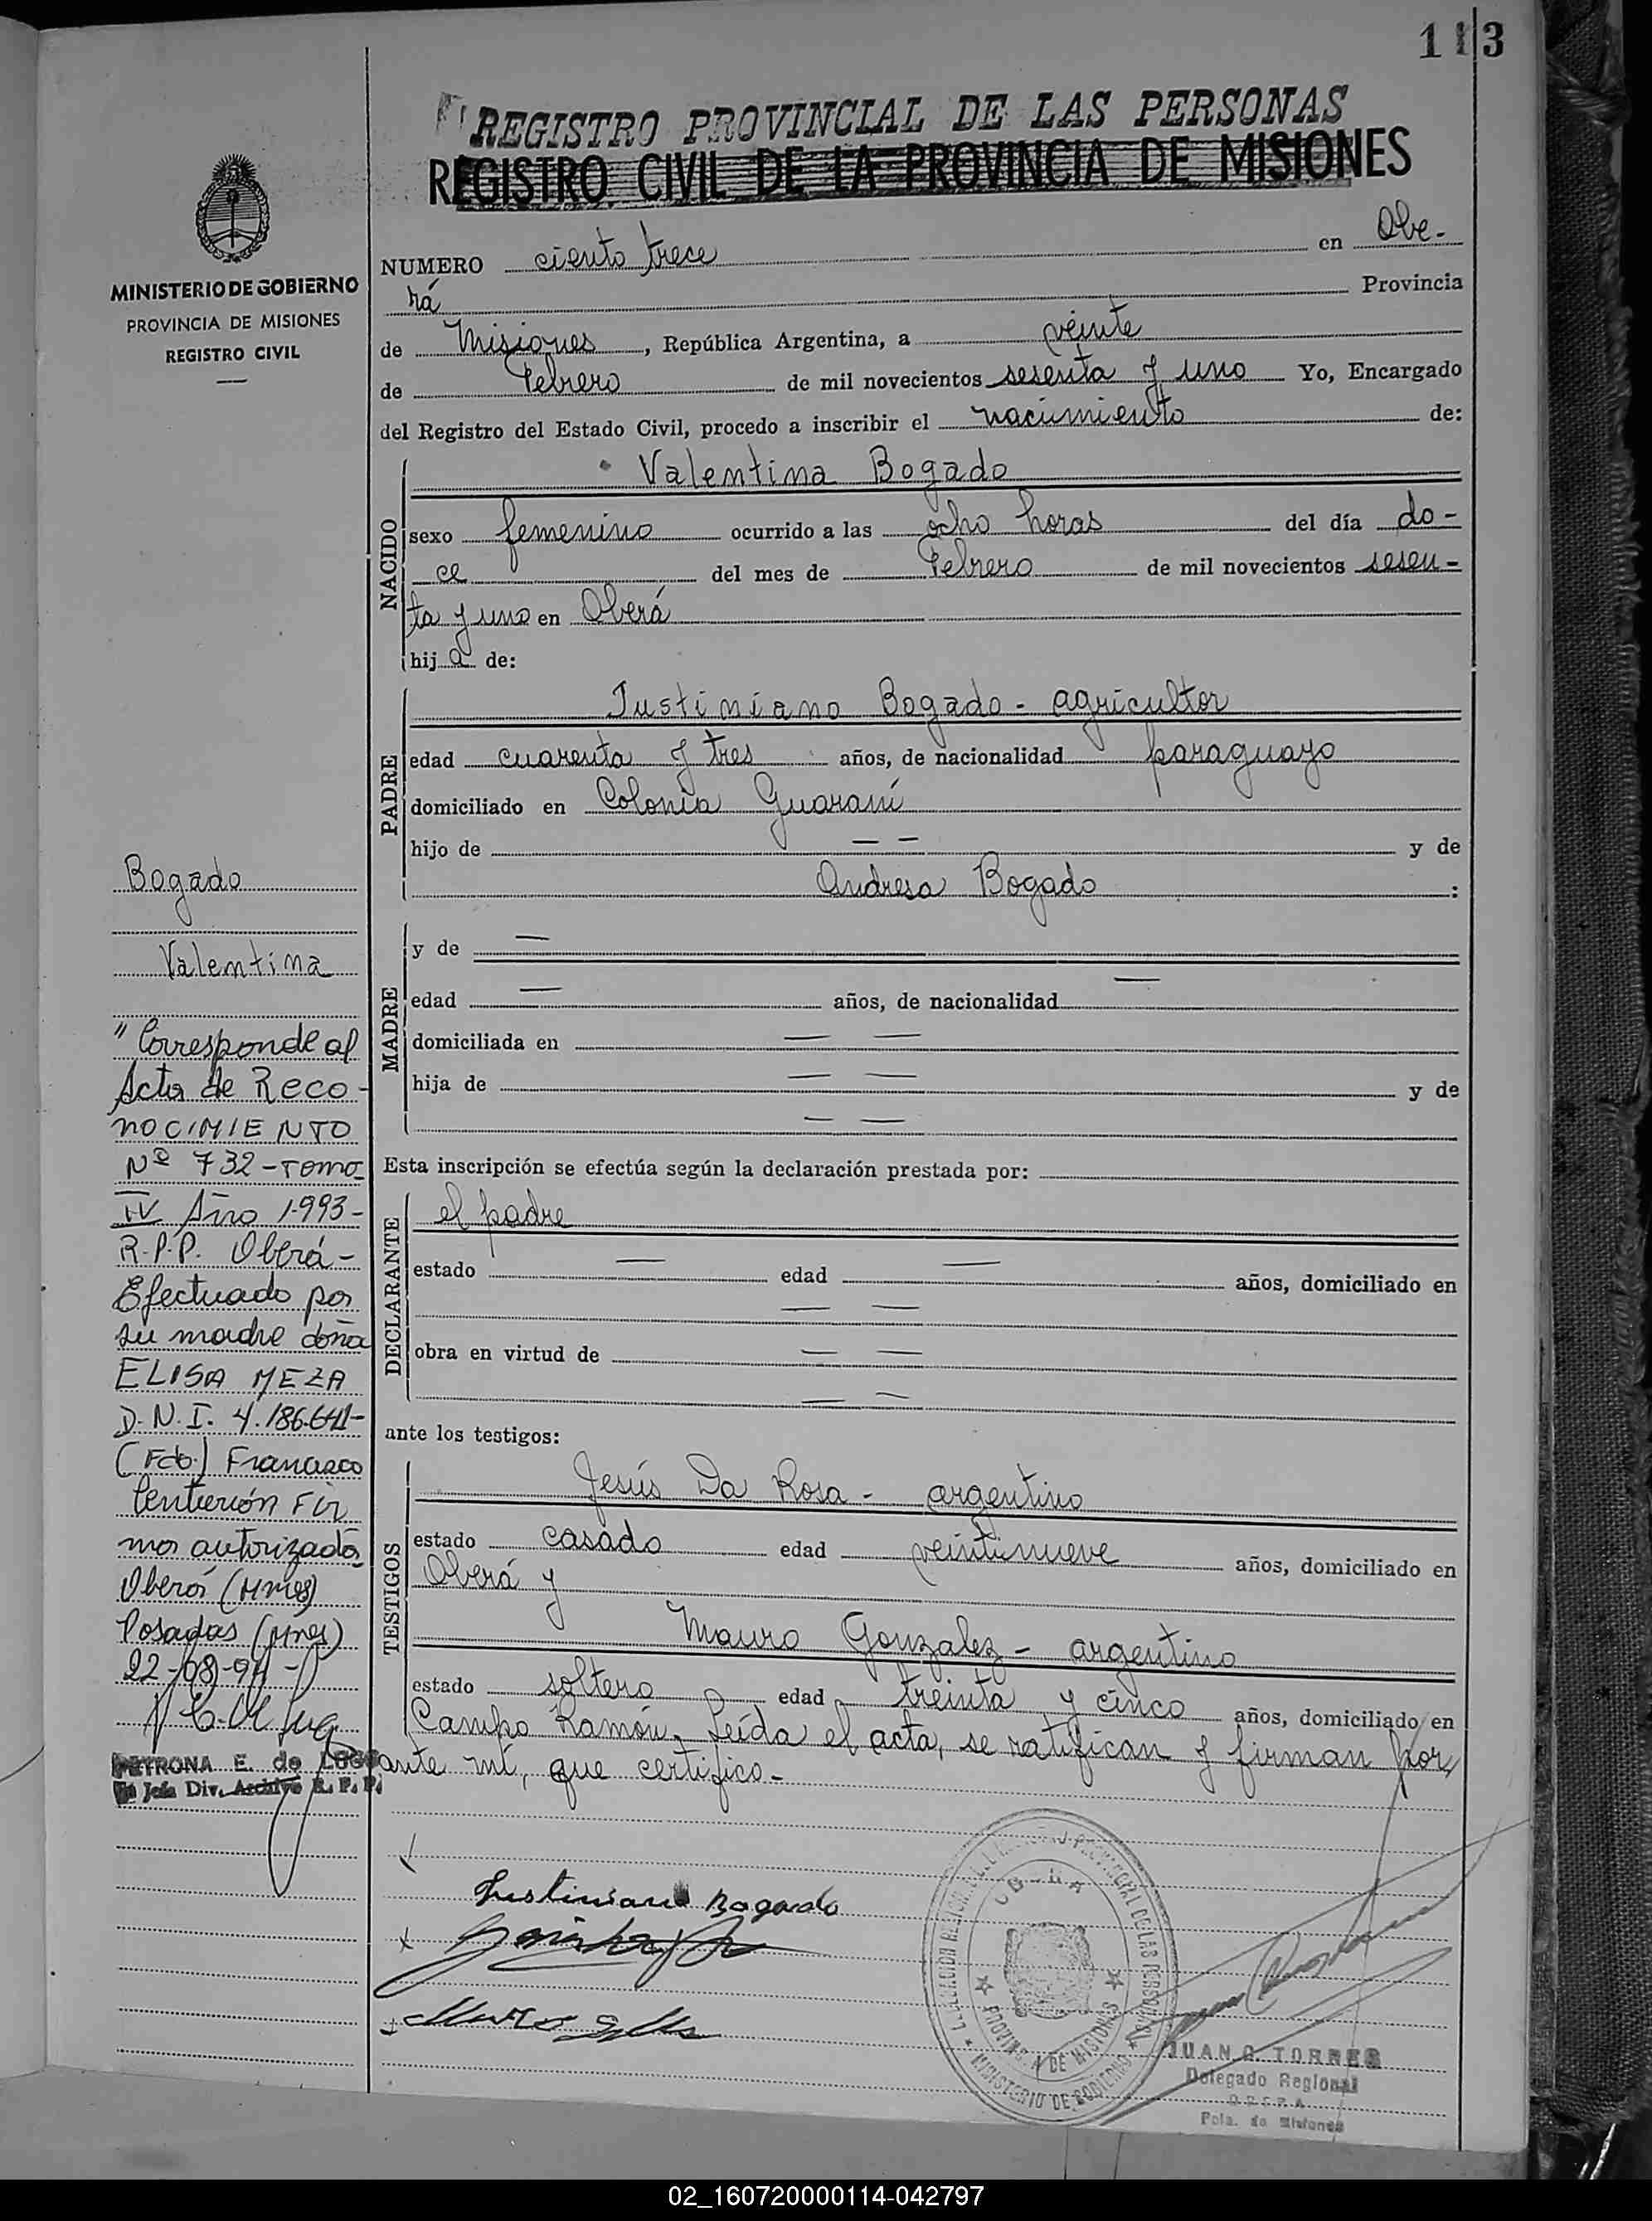 113
REGISTRO PROVINCIAL DE LAS PERSONAS
REGISTRO CIVIL DE LA PROVINCIA DE MISIONES
MINISTERIO DE GOBIERNO
PROVINCIA DE MISIONES
REGISTRO CIVIL
NUMERO ciento trece en Obe-
rá Provincia
de Misiones, República Argentina, a veinte
de Febrero de mil novecientos sesenta y uno Yo, Encargado
del Registro del Estado Civil, procedo a inscribir el nacimiento de:
NACIDO
Valentina Bogado
sexo femenino ocurrido a las ocho horas del día do-
ce del mes de Febrero de mil novecientos sesen-
ta y uno en Oberá
hij a de:
PADRE
Justiniano Bogado - agricultor
edad cuarenta y tres años, de nacionalidad paraguayo
domiciliado en Colonia Guaraní
hijo de — — y de
Andresa Bogado :
MADRE
y de —
edad — años, de nacionalidad —
domiciliada en — —
hija de — — y de
— —
Esta inscripción se efectúa según la declaración prestada por:
DECLARANTE
el padre
estado — edad — años, domiciliado en
— —
obra en virtud de — —
— —
ante los testigos:
TESTIGOS
Jesús Da Rosa - argentino
estado casado edad veintinueve años, domiciliado en
Oberá y
Mauro Gonzalez - argentino
estado soltero edad treinta y cinco años, domiciliado en
Campo Ramón. Leída el acta, se ratifican y firman por
ante mí, que certifico.-
Justiniano Bogado
Bogado
Valentina
"Corresponde al
Acta de Reco-
nocimiento
Nº 732-Tomo
IV Año 1.993-
R.P.P. Oberá-
Efectuado por
su madre doña
ELISA MEZA
D.N.I. 4.186.641-
(Fdo) Francisco
Centurión Fir
ma autorizada
Oberá (Mnes)
Posadas (Mnes)
22-08-94-
PETRONA E. de LUGO
Jefa Div. Archivo R. P. P.
OBERA
PROVINCIA DE MISIONES
MINISTERIO DE GOBIERNO
JUAN G. TORRES
Delegado Regional
OBERA
Pcia. de Misiones
02_160720000114-042797